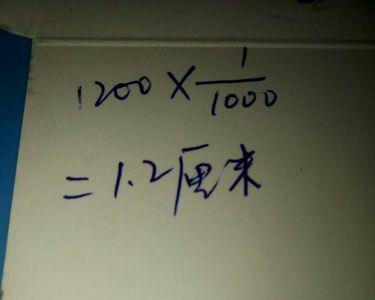 1200 × 1/1000
= 1.2厘米